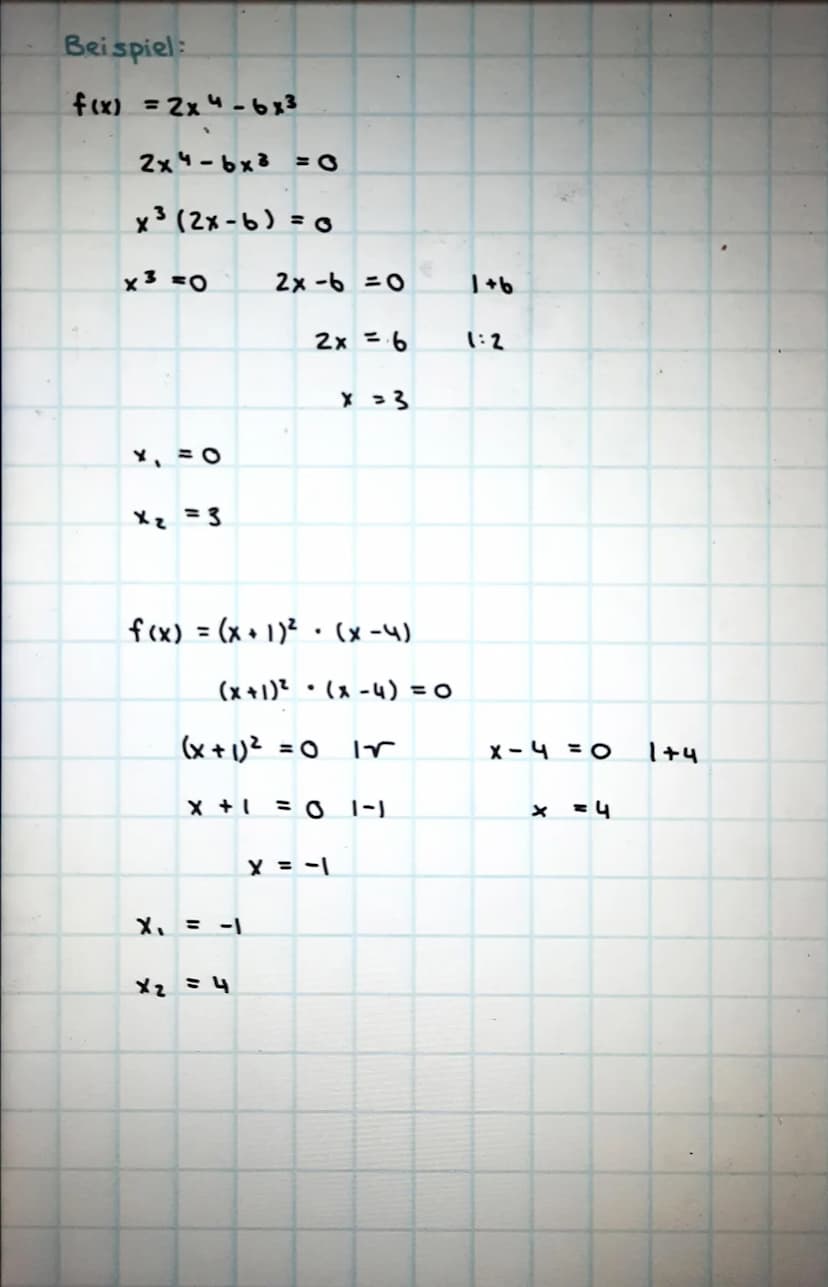 Beispiel:
f(x) = 2x⁴ - 6x³
2x⁴ - 6x³ = 0
x³ (2x - 6) = 0
x³ = 0 2x - 6 = 0 | +6
2x = 6 | :2
x = 3
x₁ = 0
x₂ = 3
f(x) = (x + 1)² · (x - 4)
(x + 1)² · (x - 4) = 0
(x + 1)² = 0 | √ x - 4 = 0 | +4
x + 1 = 0 | -1 x = 4
x = -1
x₁ = -1
x₂ = 4